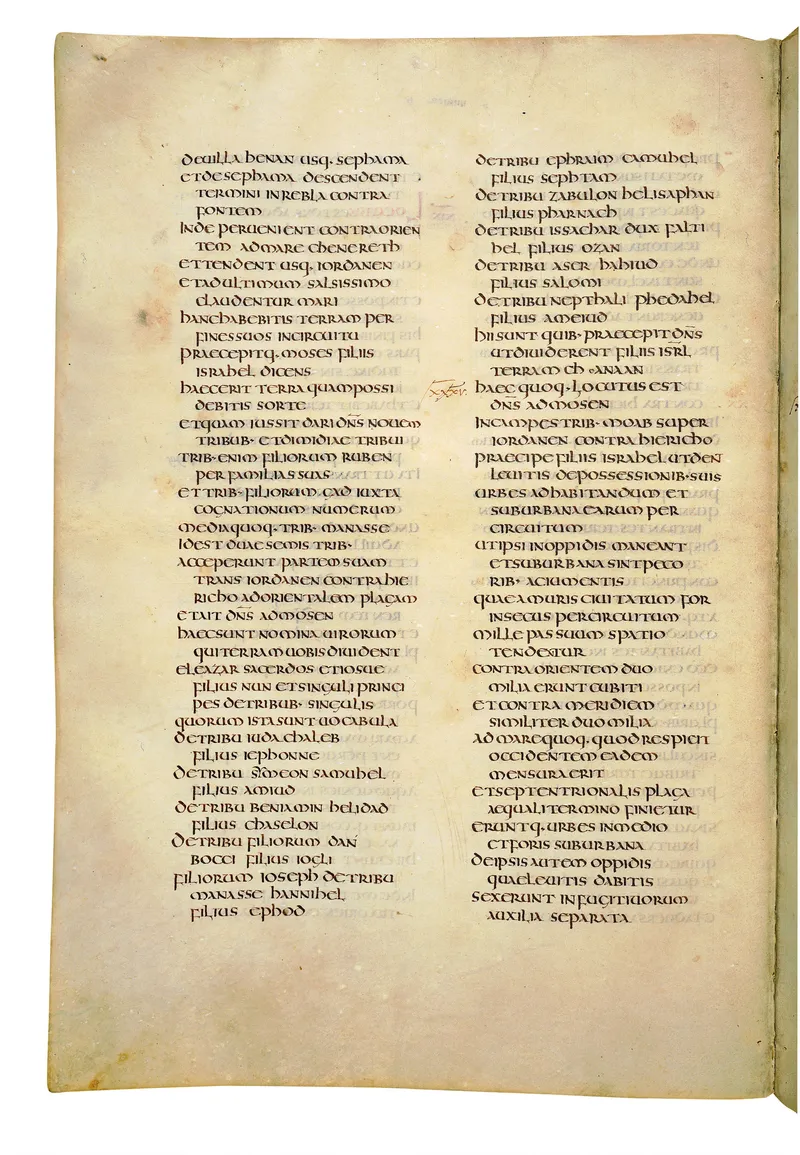 deuilla henan usq· sephama
et de sephama descendent
termini in rebla contra
fontem
inde peruenient contra orien
tem ad mare chenereth
et tendent usq· iordanen
et ad ultimum salsissimo
claudentur mari
hanc habebitis terram per
fines suos in circuitu
praecepitq· moses filiis
israhel dicens
haec erit terra quam possi
debitis sorte
et quam iussit dari dns nouem
tribub· et dimidiae tribui
trib· enim filiorum ruben
per familias suas
et trib· filiorum gad iuxta
cognationum numerum
media quoq· trib· manasse
id est duae semis trib·
acceperunt partem suam
trans iordanen contra hie
richo ad orientalem plagam
et ait dns ad mosen
haec sunt nomina uirorum
qui terram uobis diuident
eleazar sacerdos et iosue
filius nun et singuli princi
pes de tribub· singulis
quorum ista sunt uocabula
de tribu iuda chaleb
filius iephonne
de tribu simeon samuhel
filius amiud
de tribu beniamin helidad
filius chaselon
de tribu filiorum dan
bocci filius iogli
filiorum ioseph de tribu
manasse hannihel
filius ephod
de tribu ephraim camuhel
filius sephtam
de tribu zabulon helisaphan
filius pharnach
de tribu issachar dux falti
hel filius ozan
de tribu aser hahiud
filius salomi
de tribu nepthali phedahel
filius ameiud
hii sunt quib· praecepit dns
ut diuiderent filiis isrl
terram chanaan
xxxv· haec quoq· locutus est
dns ad mosen
in campestrib· moab super
iordanen contra hiericho
praecipe filiis israhel ut den
leuitis de possessionib· suis
urbes ad habitandum et
suburbana earum per
circuitum
ut ipsi in oppidis maneant
et suburbana sint peco
rib· ac iumentis
quae a muris ciuitatum for
insecus per circuitum
mille passuum spatio
tendetur
contra orientem duo
milia erunt cubiti
et contra meridiem
similiter duo milia
ad mare quoq· quod respicit
occidentem eadem
mensura erit
et septentrionalis plaga
aequali termino finietur
eruntq· urbes in medio
et foris suburbana
de ipsis autem oppidis
quae leuitis dabitis
sex erunt in fugitiuorum
auxilia separata